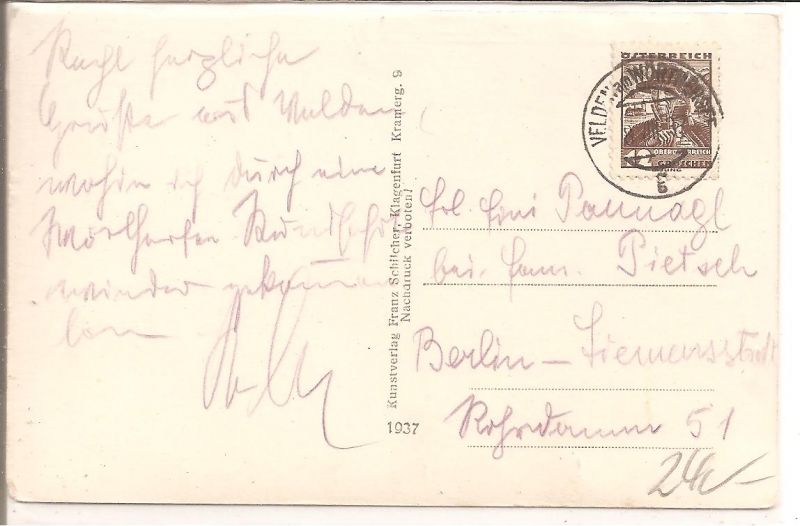 Recht herzliche
Grüße aus Velden,
wohin ich durch eine
Rundfahrt
wieder gekommen
bin
Kunstverlag Franz Schilcher, Klagenfurt Kramerg. 9
Nachdruck verboten!
1937
ÖSTERREICH
OBERÖSTERREICH
GROSCHEN
VELDEN AM WÖRTHERSEE
Frl. Fini Pannagl
bei Fam. Pietsch
Berlin – Siemensstadt
Rohrdamm 51